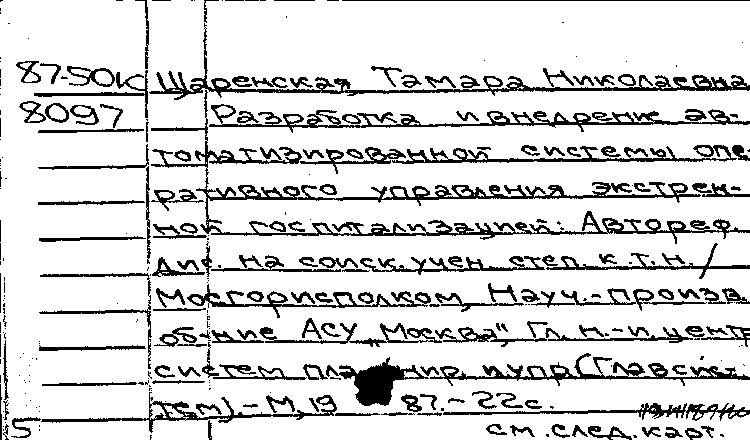 87-50к Щаренская, Тамара Николаевна
8097 Разработка и внедрение ав-
томатизированной системы опе-
ративного управления экстрен-
ной госпитализацией: Автореф.
дис. на соиск. учен. степ. к.т.н. /
Мосгорисполком, Науч.-произв.
об-ние АСУ „Москва", Гл. н.-и. центр
систем пла нир. и упр. (Главсис-
тем). - М, 19 87. - 22 с.
5 см. след. карт.